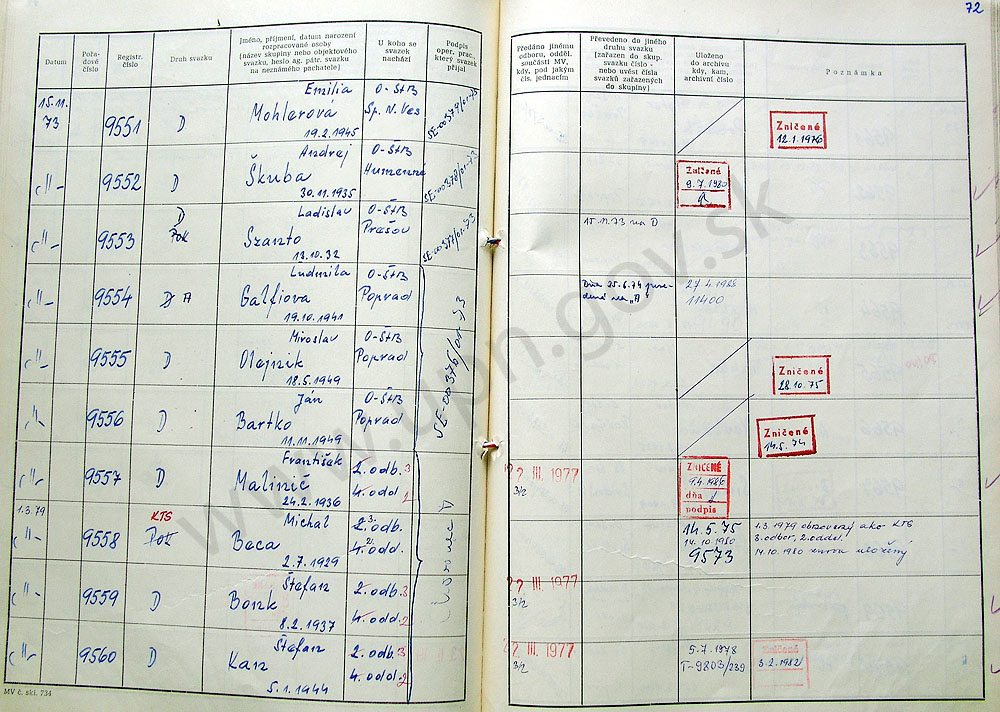 72
Datum
Pořa-
dové
číslo
Registr.
číslo
Druh svazku
Jméno, příjmení, datum narození
rozpracované osoby
(název skupiny nebo objektového
svazku, heslo ag. pátr. svazku
na neznámého pachatele)
U koho se
svazek
nachází
Podpis
oper. prac.,
který svazek
přijal
Předáno jinému
odboru, odděl.
součásti MV,
kdy, pod jakým
čís. jednacím
Převedeno do jiného
druhu svazku
(zařazen do skup.
svazku číslo -
nebo uvést čísla
svazků zařazených
do skupiny)
Uloženo
do archivu
kdy, kam,
archivní číslo
Poznámka
15.11.
73
9551
D
Emília
Mohlerová
19.2.1945
O-ŠtB
Sp. N. Ves
SE-00379/01-73
Zničené
12.1.1976
-"-
9552
D
Andrej
Škuba
30.11.1935
O-ŠtB
Humenné
SE-00378/01-73
Zničené
9.7.1980
-"-
9553
D
Ladislav
Szanto
13.10.32
O-ŠtB
Prešov
SE-00377/01-73
15.11.73 na D
-"-
9554
D A
Ludmila
Galfiova
19.10.1941
O-ŠtB
Poprad
SE-00376/01-73
Dňa 25.6.74 pre-
dená na "A"
27.4.1988
11400
-"-
9555
D
Miroslav
Olejnik
18.5.1949
O-ŠtB
Poprad
Zničené
28.10.75
-"-
9556
D
Ján
Bartko
11.11.1949
O-ŠtB
Poprad
Zničené
14.5.74
-"-
9557
D
František
Malinič
24.2.1936
2. odb. 3
4. odd. 1
22 III. 1977
3/2
ZNIČENÉ
dňa
podpis
1.3.79
-"-
9558
KTS
Michal
Beca
2.7.1929
2. 3. odb.
4. 2. odd.
14.5.75
14.10.1980
9573
1.3.1979 obnovený ako KTS
3. odbor, 2. oddel.
14.10.1980 znovu uložený
-"-
9559
D
Štefan
Bonk
8.2.1937
2. odb. 3
4. odd. 2
22 III. 1977
3/2
-"-
9560
D
Štefan
Kan
5.1.1944
2. odb. 3
4. odd. 2
22 III. 1977
3/2
5.7.1978
T-9803/239
Zničené
3.2.1982
MV č. skl. 734
www.upn.gov.sk